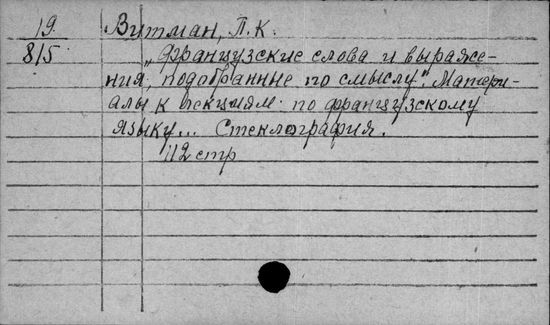 19.
815
Витман, П. К.
„Французские слова и выраже-
ния, подобранные по смыслу". Матери-
алы к лекциям по французскому
языку... Стеклография.
112 стр